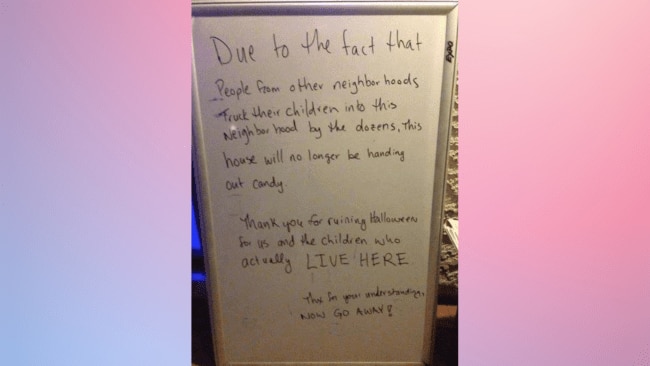 Due to the fact that
People from other neighborhoods
Truck their children into this
Neighborhood by the dozens, This
house will no longer be handing
out candy.
Thank you for ruining Halloween
for us and the children who
actually LIVE HERE
Thx for your understanding,
NOW GO AWAY!
EXPO